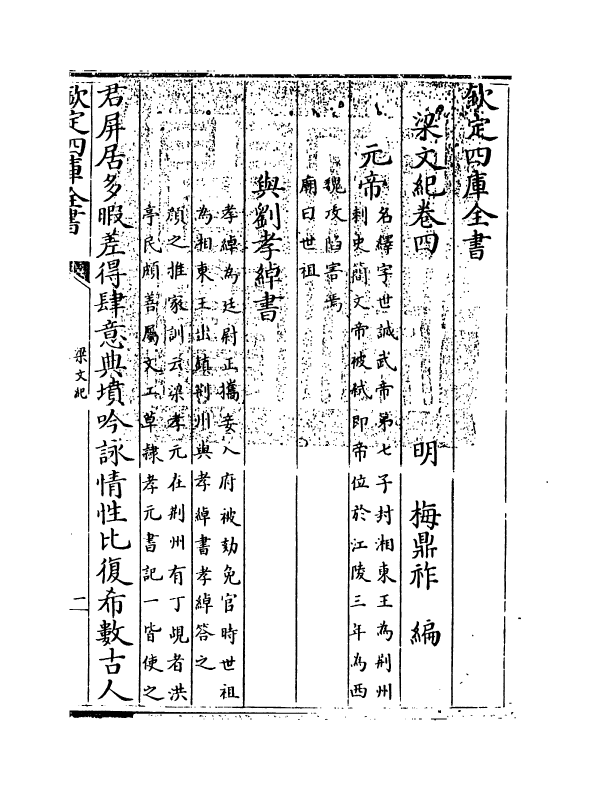 欽定四庫全書
梁文紀卷四
明 梅鼎祚 編
元帝
名繹字世誠武帝第七子封湘東王為荆州
刺史簡文帝被弑即帝位於江陵三年為西
魏攻陷害焉
廟曰世祖
與劉孝綽書
孝綽為廷尉正攜妾入府被劾免官時世祖
為湘東王出鎮荆州與孝綽書孝綽答之
顔之推家訓云梁孝元在荆州有丁覘者洪
亭民頗善屬文工草隸孝元書記一皆使之
君屏居多暇差得肆意典墳吟詠情性比復希數古人
欽定四庫全書
梁文紀
二